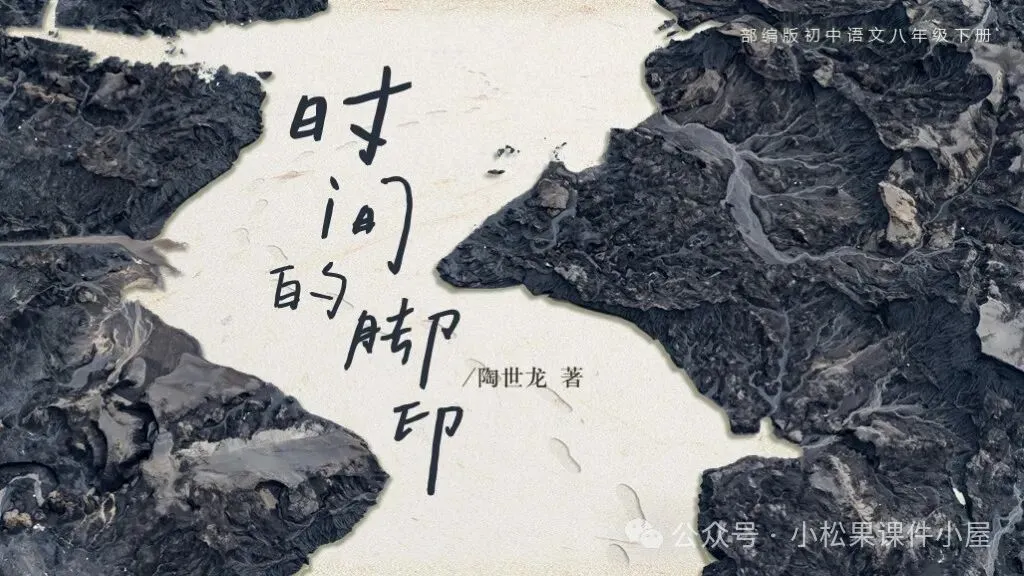 部编版初中语文八年级下册
时间的脚印
/陶世龙 著
公众号·小松果课件小屋